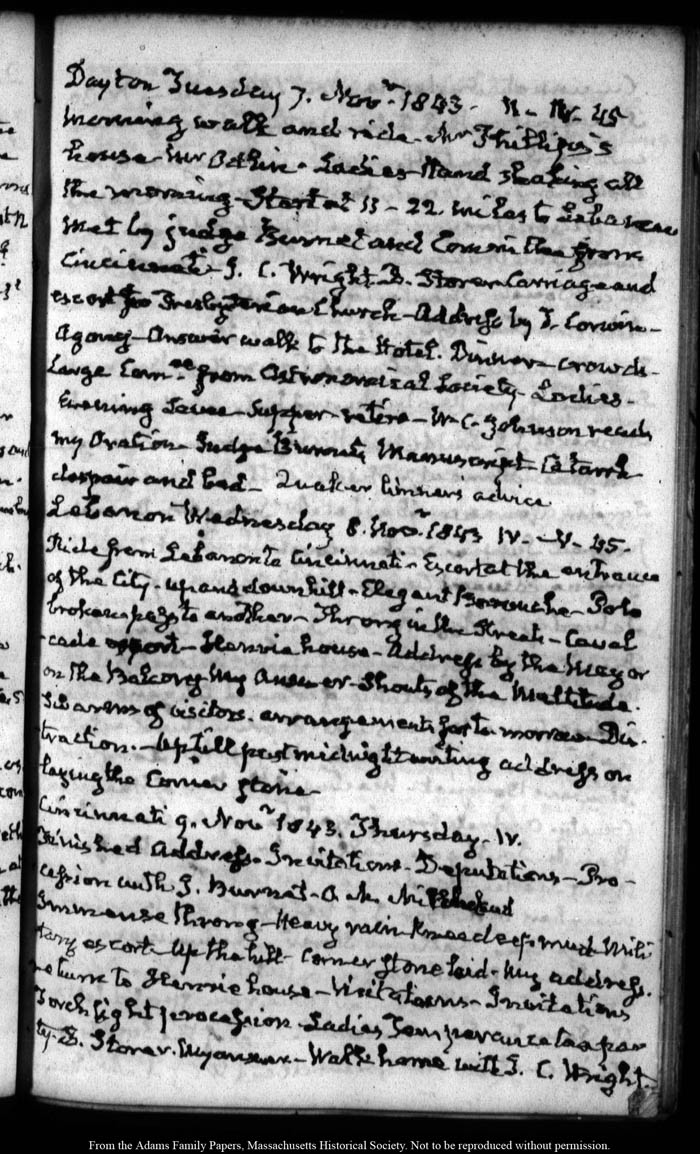 Dayton Tuesday 7. Novr. 1843. II- IV. 45
Morning walk and ride. Mr Phillips's
house. Mr Odlin. Ladies Hand shaking all
the morning. Start at 11- 22. miles to Lebanon
Met by judge Burnet and Committee from
Cincinnati. J. C. Wright B. Storer Carriage and
escort to Presbyterian Church- Address by T. Corwin-
Agony- Answer walk to the Hotel. Dinner- crowds-
Large Comee. from Astronomical Society. Ladies-
Evening Levee- Supper retire- W. C. Johnson reads
my Oration- Judge Burnet's Manuscript Catarrh
despair and bed- Quaker limner's advice
Lebanon Wednesday 8. Novr. 1843 IV. -V- 45.
Ride from Lebanon to Cincinnati- Escort at the entrance
of the City. up and down hill- Elegant Barouche- Pole
broken pass to another- Throng in the Street- Caval
-cade escort- Henrie house- Address by the Mayor
on the Balcony My Answer. Shouts of the Multitude.
Swarms of visitors. arrangements for to-morrow Dis-
traction.- Up till past midnight writing address on
laying the Corner stone-
Cincinnati 9. Novr. 1843. Thursday- IV.
Finished Address- Invitations- Deputations- Pro-
cession with J. Burnet- O. M. Mitchel and
Immense throng- Heavy rain Knee deep mud Mili
tary escort- Up the hill- Corner stone laid- My address.
return to Henrie house- Visitations- Invitations
Torch light procession- Ladies Temperance tea par
ty- B. Storer. My answer- Walk home with J. C. Wright.
From the Adams Family Papers, Massachusetts Historical Society. Not to be reproduced without permission.